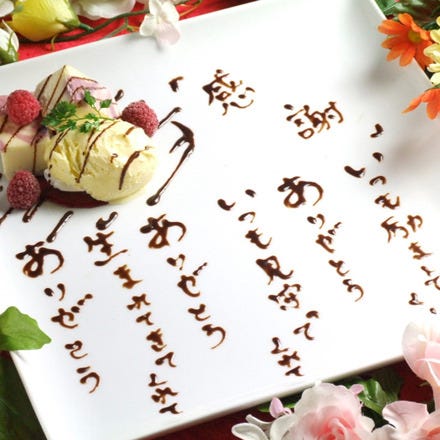 感謝
いつも
ありがとう
いつも見守って
ありがとう
生まれてきてくれて
ありがとう